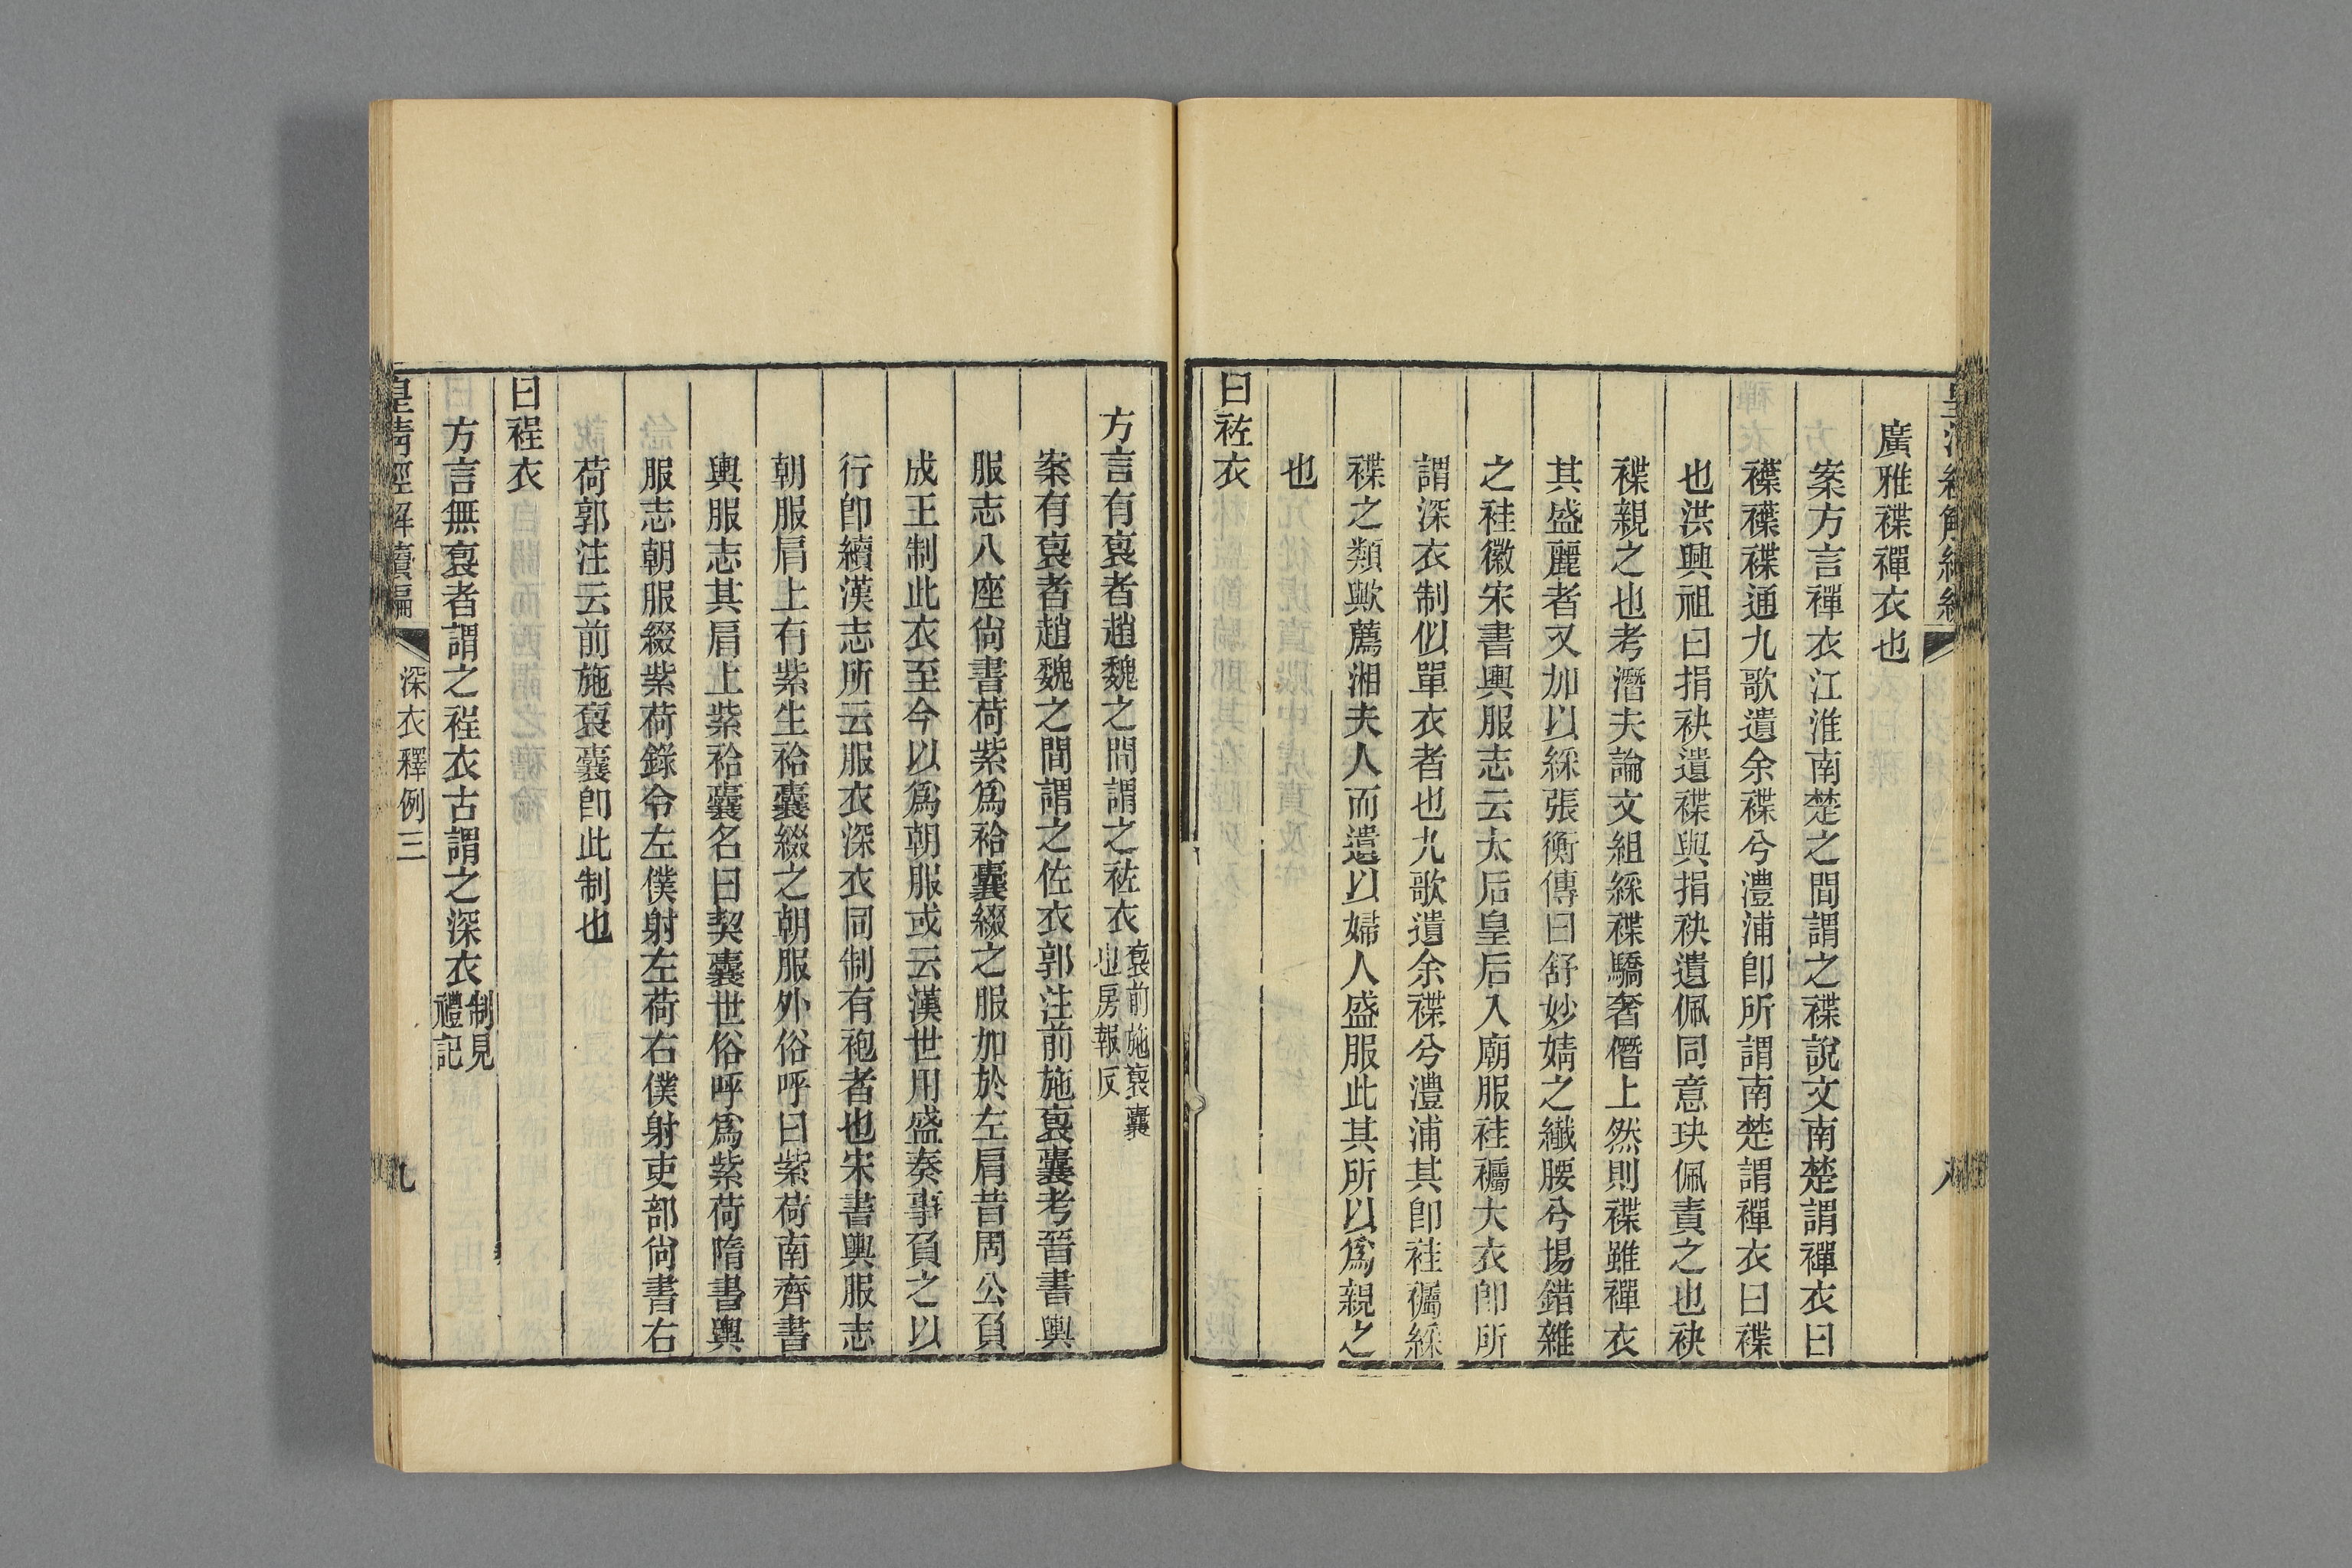 廣雅褋襌衣也
案方言襌衣江淮南楚之閒謂之褋說文南楚謂襌衣曰
襍褋通九歌遺余褋兮澧浦卽所謂南楚謂襌衣曰褋
也洪興祖曰捐袂遺褋與捐袂遺佩同意玦佩責之也袂
褋親之也考潛夫論文組綵褋驕奢僭上然則褋雖襌衣
其盛麗者又加以綵張衡傳曰舒妙婧之纖腰兮揚錯雜
之袿徽宋書輿服志云太后皇后入廟服袿襡大衣卽所
謂深衣制似單衣者也九歌遺余褋兮澧浦其卽袿襡綵
褋之類歟薦湘夫人而遺以婦人盛服此其所以爲親之
也
曰袏衣
方言有裒者趙魏之閒謂之袏衣裒前施裒囊也房報反
案有裒者趙魏之間謂之佐衣郭注前施裒囊考晉書輿
服志八座尙書荷紫爲袷囊綴之服加於左肩昔周公負
成王制此衣至今以爲朝服或云漢世用盛奏事負之以
行卽續漢志所云服衣深衣同制有袍者也宋書輿服志
朝服肩上有紫生袷囊綴之朝服外俗呼曰紫荷南齊書
輿服志其肩上紫袷囊名曰契囊世俗呼爲紫荷隋書輿
服志朝服綴紫荷錄令左僕射左荷右僕射吏部尙書右
荷郭注云前施裒囊卽此制也
曰裎衣
方言無裒者謂之裎衣古謂之深衣制見禮記
皇清經解續編 深衣釋例三 九